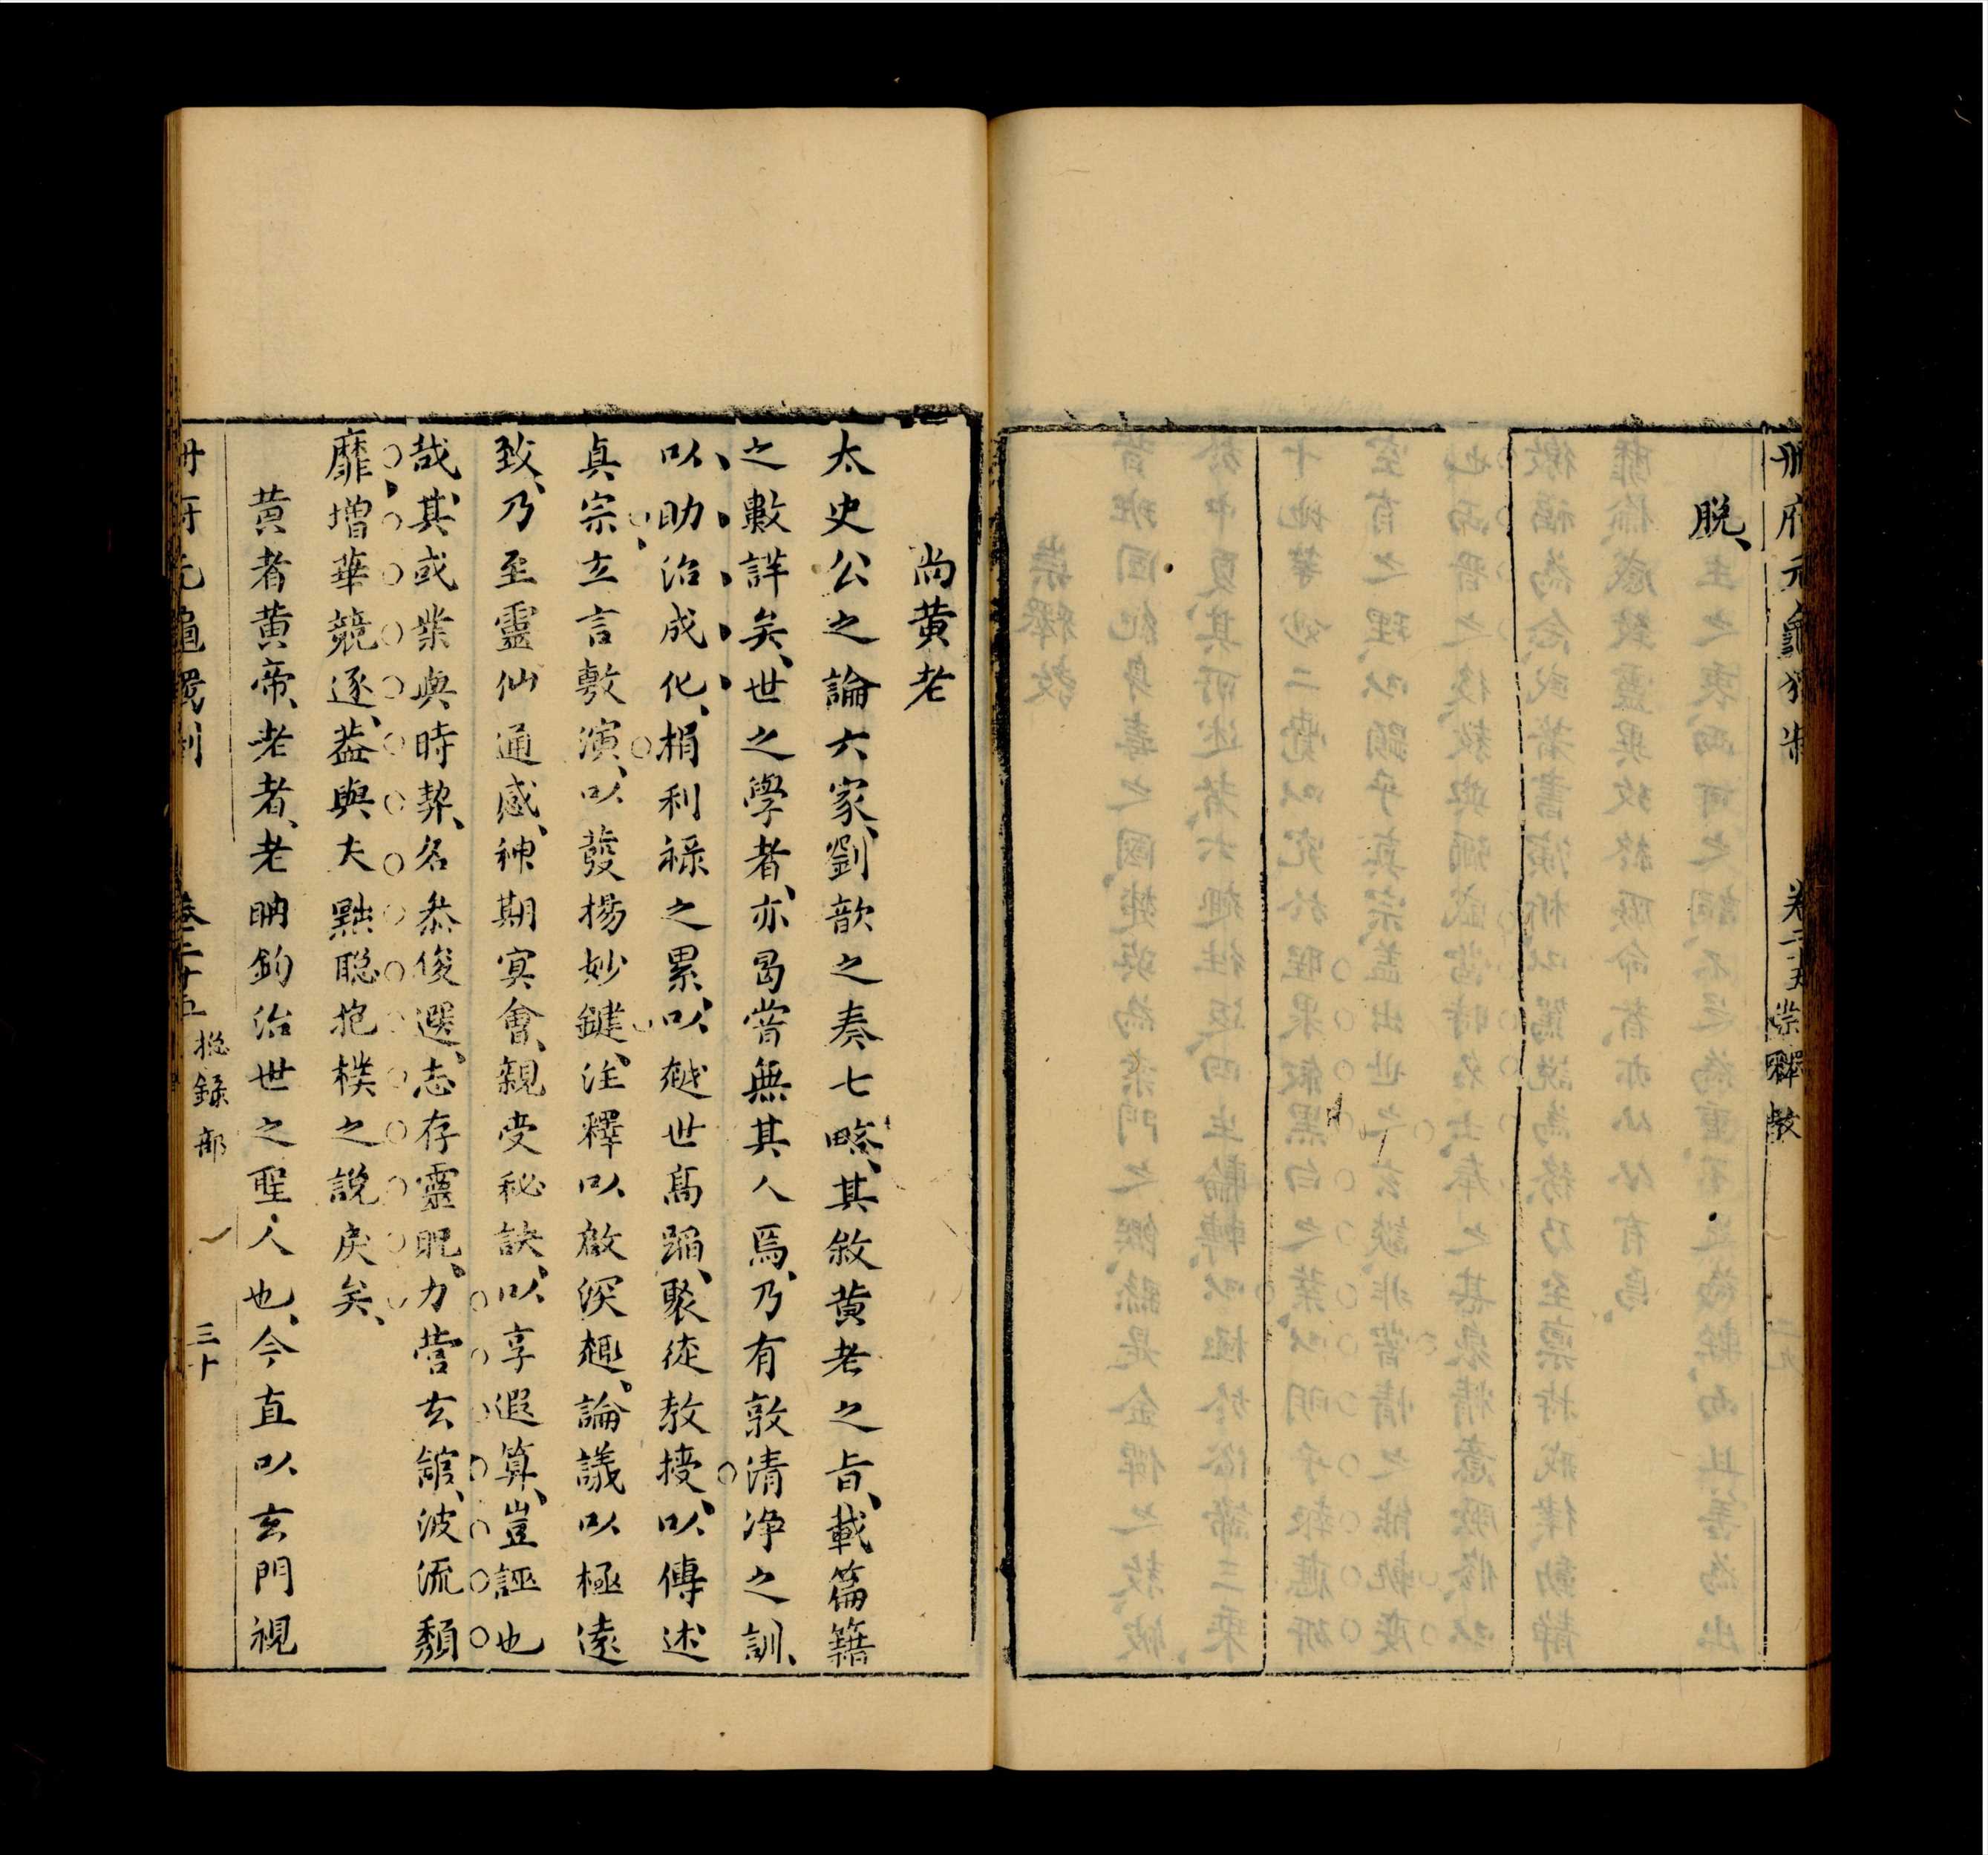 冊府元龜獨制 卷二十五 崇釋教
脱、
尚黄老
太史公之論六家、劉歆之奏七略、其敘黄老之旨、載篇籍
之數詳矣、世之學者、亦曷嘗無其人焉、乃有敦清净之訓、
以助治成化、捐利祿之累、以越世高蹈、聚徒教授、以傳述
真宗立言敷演、以發揚妙鍵、注釋以啟深趣、論議以極遠
致、乃至靈仙通感、神期冥會、親受秘訣、以享遐算、豈誣也
哉、其或業與時契、名忝俊選、志存靈覛、力營玄舘、波流頽
靡、增華競逐、葢與夫黜聪抱樸之說戾矣、
黄者黄帝、老者、老聃鈞治世之聖人也、今直以玄門視
冊府元龜獨制 卷二十五 総錄部 三十